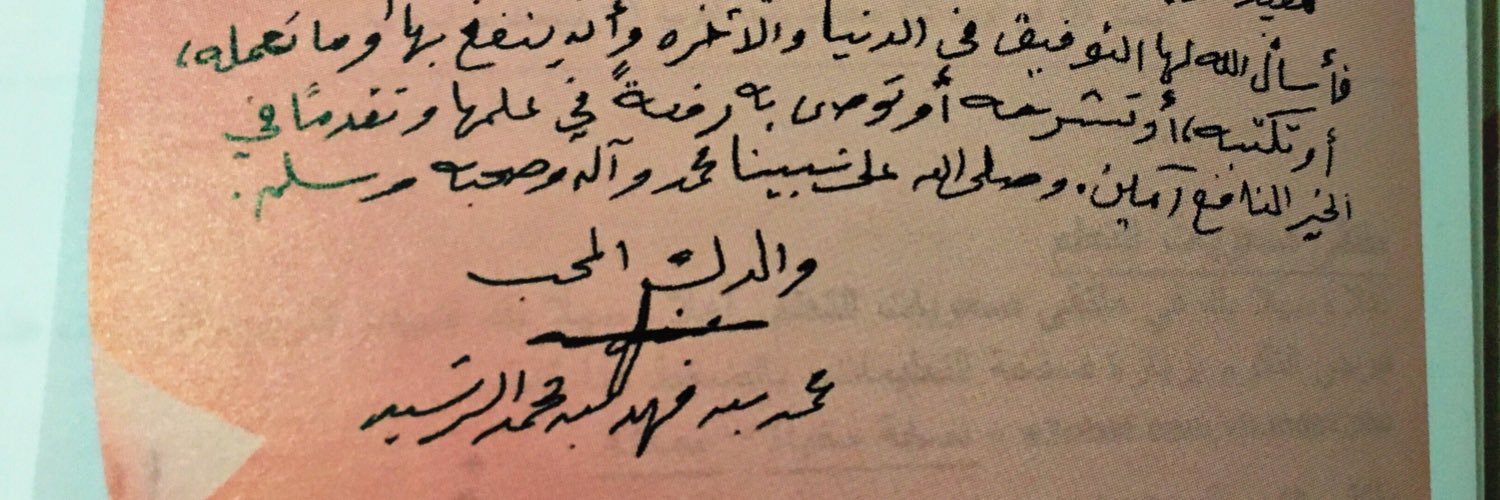 فأسأل الله لها التوفيق في الدنيا والآخرة وأن ينفع بها وما تعمله،
أو تكتبه، أو تشرحه أو توصى به رفعةً في علمها وتقدمًا في
الخير النافع آمين. وصلى الله على نبينا محمد وآله وصحبه وسلم.
والدك المحب
محمد بن فهد بن محمد الرشيد